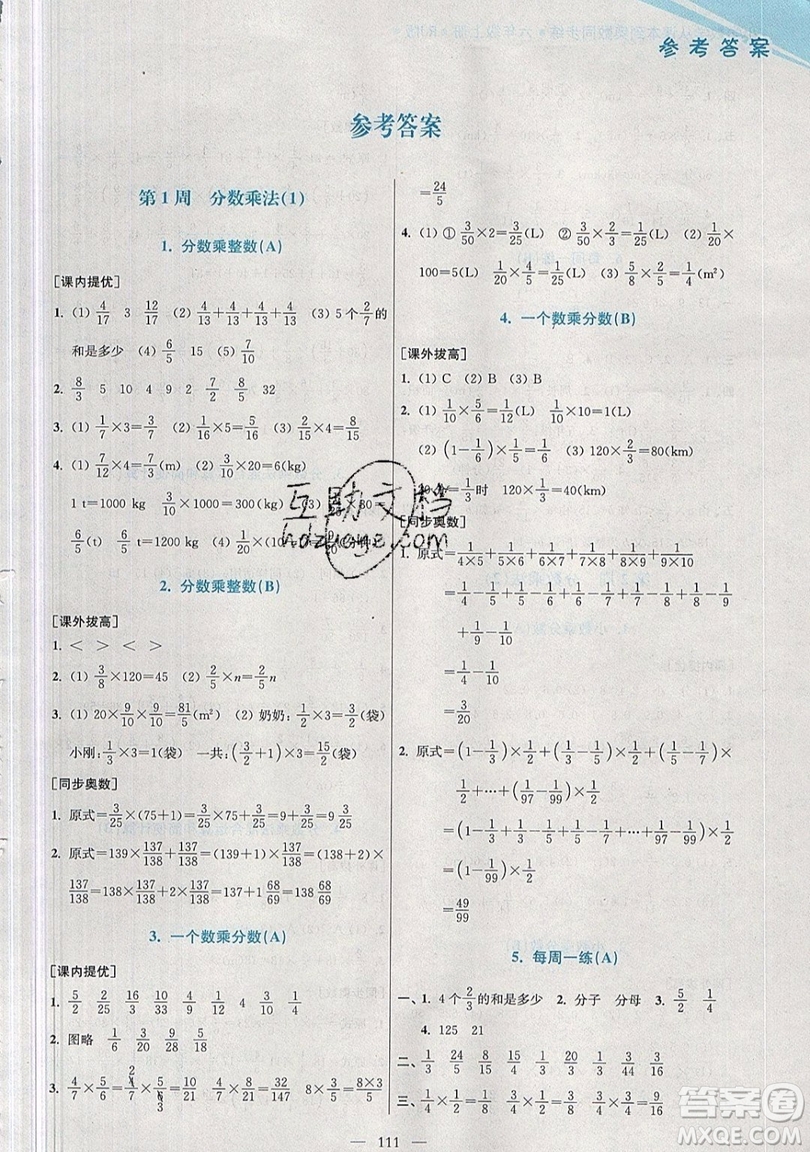 参考答案
参考答案
第1周 分数乘法(1)
1. 分数乘整数(A)
[课内提优]
1. (1) 4/17 3 12/17 (2) 4/13+4/13+4/13+4/13 (3) 5个2/7的
和是多少 (4) 6/5 15 (5) 7/10
2. 8/3 5 10 4 9 2 7/2 8/5 32
3. (1) 1/7×3=3/7 (2) 1/16×5=5/16 (3) 2/15×4=8/15
4. (1) 7/12×4=7/3(m) (2) 3/10×20=6(kg)
1 t=1000 kg 3/10×1000=300(kg) (3)
6/5(t) 6/5=
2. 分数乘整数(B)
[课外拔高]
1. < > < >
2. (1) 3/8×120=45 (2) 2/5×n=2/5n
3. (1) 20×9/10×9/10=81/5(m²) (2) 奶奶:1/2×3=3/2(袋)
小刚:1/3×3=1(袋) 一共:(3/2+1)×3=15/2(袋)
[同步奥数]
1. 原式=3/25×(75+1)=3/25×75+3/25=9+3/25=9 3/25
2. 原式=139×137/138=(139+1)×137/138=(138+2)×
137/138=138×137/138+2×137/138=137+1 68/69=138 68/69
3. 一个数乘分数(A)
[课内提优]
1. 5/2 2/25 16/15 10/33 4/9 8/21 1/4 3/10
2. 图略 1/6 3/20 9/28 5/18
3. 4/7×5/6=2/7×5/3=10/21 4/7×8/21=32/147 8×3/5=8×3/5
=24/5
4. (1) ① 3/50×2=3/25(L) ② 3/50×2/3=1/25(L) (2) 1/20×
100=5(L) 1/20×4/5=1/25(L) (3) 5/8×2/5=1/4(m²)
4. 一个数乘分数(B)
[课外拔高]
1. (1) C (2) B (3) B
2. (1) 1/10×5/6=1/12(L) 1/10×10=1(L)
(2) (1-1/6)×(1-1/6) (3) 120×2/3=80(km)
=1/3时 120×1/3=40(km)
[同步奥数]
1. 原式=1/4×5+1/5×6+1/6×7+1/7×8+1/8×9+1/9×10
=1/4-1/5+1/5-1/6+1/6-1/7+1/7-1/8+1/8-1/9
+1/9-1/10
=1/4-1/10
=3/20
2. 原式=(1-1/3)×1/2+(1/3-1/5)×1/2+(1/5-1/7)×
1/2+…+(1/97-1/99)×1/2
=(1-1/3+1/3-1/5+1/5-1/7+…+1/97-1/99)×1/2
=(1-1/99)×1/2
=49/99
5. 每周一练(A)
一、1. 4个2/3的和是多少 2. 分子 分母 3. 5/2 1/4
4. 125 21
二、1/3 24/5 8/15 15/4 4/15 1/3 1/10 8/3 4/3
三、1/4×1/2=1/8 1/3×2/5=2/15
互助文档
hdzuoye.com
答案圈
MXQE.COM
111